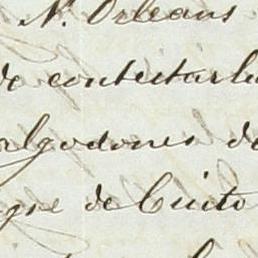 N. Orleans
de contestarle
algodones de
que de Cuito